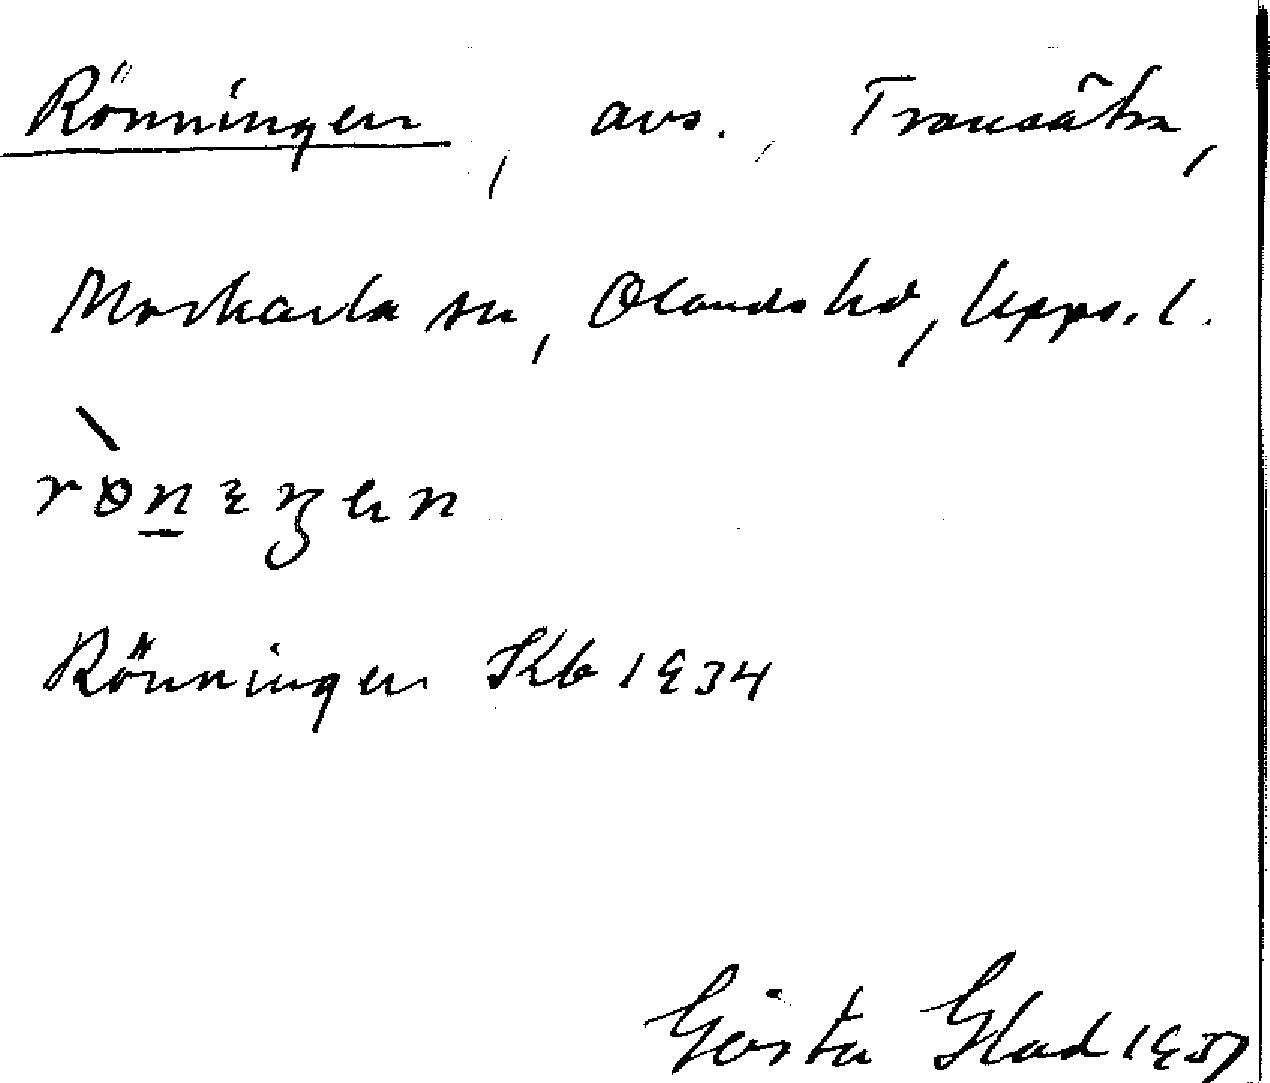 Rönningen, avs., Transätra,
Morkarla sn, Olands hd, Upps. l.
Rönningen Kb 1934
Gösta Glad 1957